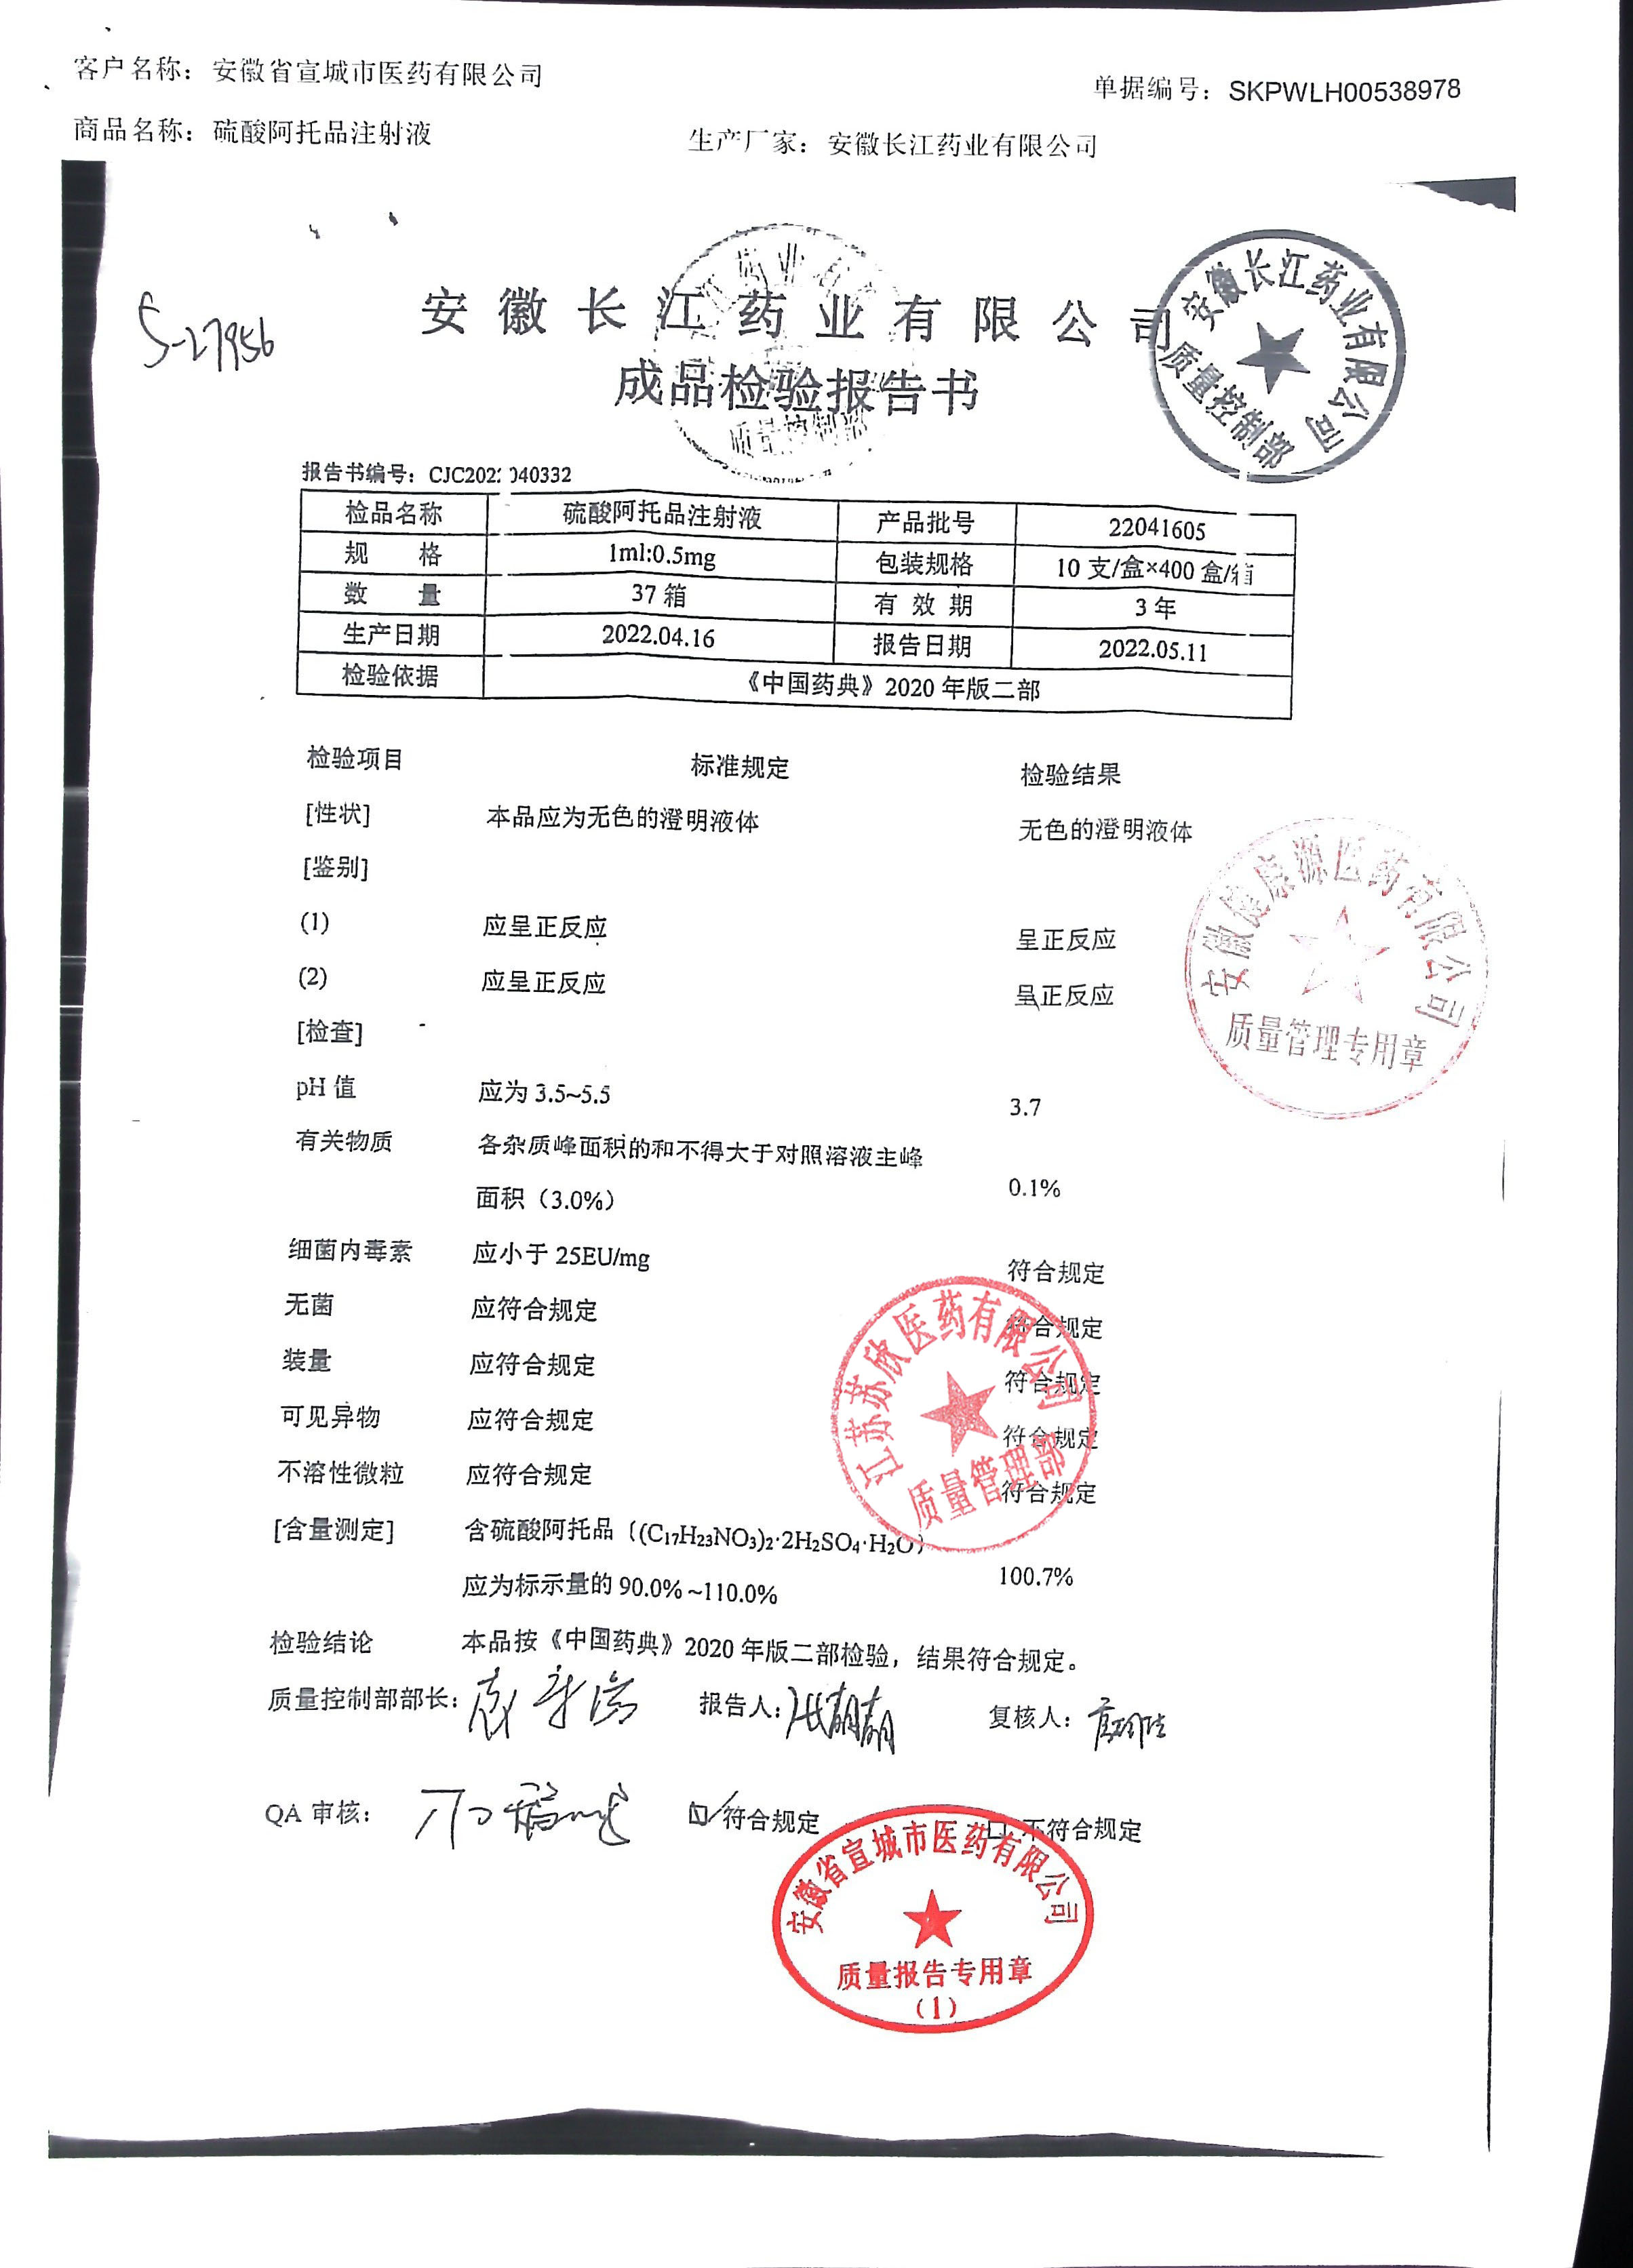 客户名称：安徽省宣城市医药有限公司
单据编号：SKPWLH00538978
商品名称：硫酸阿托品注射液
生产厂家：安徽长江药业有限公司
S-27956
安徽长江药业有限公司
成品检验报告书
安徽长江药业有限公司
质量控制部
药业有
质量控制部
报告书编号：CJC2022040332
检品名称 硫酸阿托品注射液 产品批号 22041605
规 格 1ml:0.5mg 包装规格 10 支/盒×400 盒/箱
数 量 37 箱 有 效 期 3 年
生产日期 2022.04.16 报告日期 2022.05.11
检验依据 《中国药典》2020 年版二部
检验项目 标准规定 检验结果
[性状] 本品应为无色的澄明液体 无色的澄明液体
[鉴别]
(1) 应呈正反应 呈正反应
(2) 应呈正反应 呈正反应
安徽健康源医药有限公司
质量管理专用章
[检查]
pH 值 应为 3.5~5.5 3.7
有关物质 各杂质峰面积的和不得大于对照溶液主峰
面积（3.0%） 0.1%
细菌内毒素 应小于 25EU/mg 符合规定
无菌 应符合规定 符合规定
装量 应符合规定 符合规定
可见异物 应符合规定 符合规定
不溶性微粒 应符合规定 符合规定
江苏苏欣医药有限公司
质量管理部
[含量测定] 含硫酸阿托品〔(C₁₇H₂₃NO₃)₂·2H₂SO₄·H₂O〕
应为标示量的 90.0%~110.0% 100.7%
检验结论 本品按《中国药典》2020 年版二部检验，结果符合规定。
质量控制部部长： 报告人： 复核人：
QA 审核： ☑符合规定 □不符合规定
安徽省宣城市医药有限公司
质量报告专用章
（1）